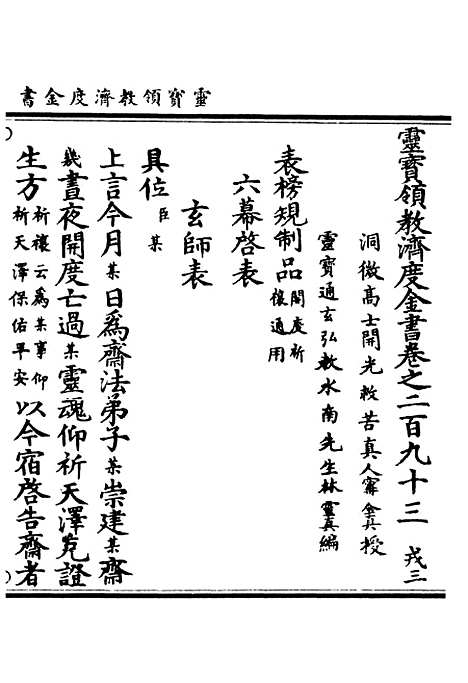 靈寶領教濟度金書
靈寶領教濟度金書卷之二百九十三 戎三
洞微高士開光救苦真人甯全真授
靈寶通玄弘教水南先生林靈真編
表榜規制品 開度祈禳通用
六幕啓表
玄師表
具位臣某
上言今月某日爲齋法弟子某崇建某齋
幾晝夜開度亡過某靈魂仰祈天澤克證
生方 祈禳云爲某事仰祈天澤保佑平安 以今宿啓告齋者